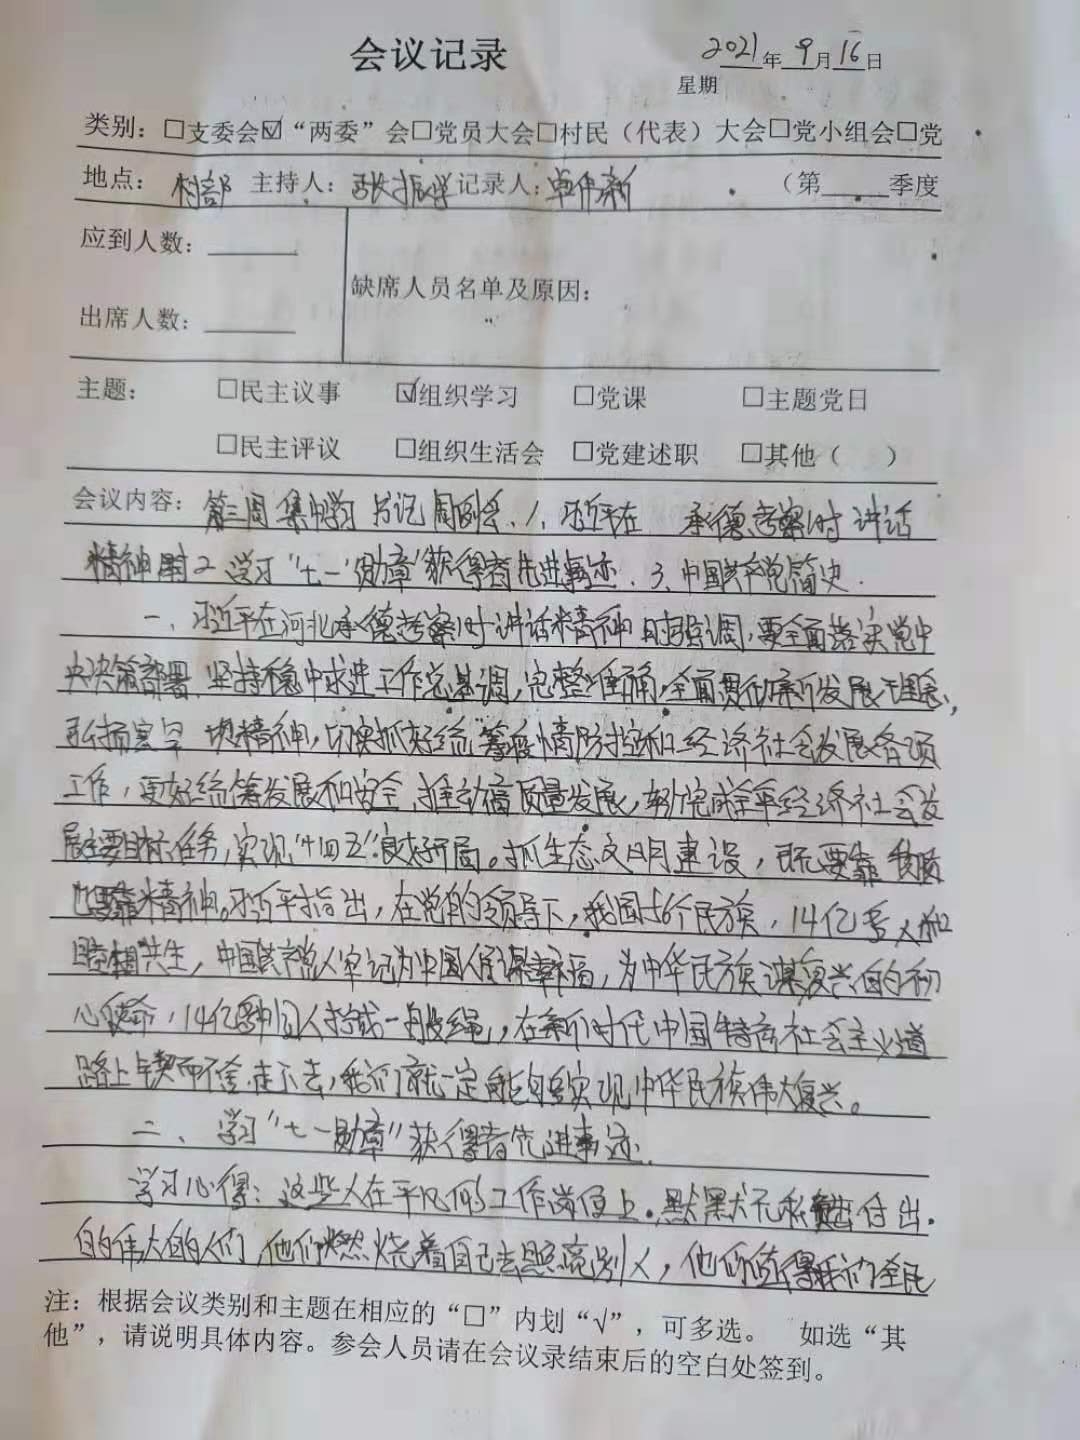 会议记录
2021年9月16日
星期
类别：□支委会☑“两委”会□党员大会□村民（代表）大会□党小组会□党
地点：村部 主持人：张振学 记录人：单伟新 （第 季度
应到人数：
缺席人员名单及原因：
出席人数：
主题： □民主议事 ☑组织学习 □党课 □主题党日
□民主评议 □组织生活会 □党建述职 □其他（ ）
会议内容：第三周集中学习 书记周例会、1、习近平在 承德考察时讲话
精神 2、学习“七一”勋章获得者先进事迹、3、中国共产党简史.
一、习近平在河北承德考察时讲话精神 强调，要全面落实党中
央决策部署、坚持稳中求进工作总基调，完整准确，全面贯彻新发展理念，
弘扬塞罕坝精神，切实抓好统筹疫情防控和经济社会发展各项
工作，更好统筹发展和安全、推动高质量发展，努力完成全年经济社会发
展主要目标任务，实现“十四五”良好开局。抓生态文明建设，既要靠物质
也要靠精神。习近平指出，在党的领导下，我国56个民族，14亿多人和
睦相共生，中国共产党人牢记为中国人民谋幸福，为中华民族谋复兴的初
心使命，14亿 人拧成一股绳，在新时代中国特色社会主义道
路上锲而不舍走下去，我们就一定能够实现中华民族伟大复兴。
二、学习“七一勋章”获得者先进事迹.
学习心得：这些人在平凡的工作岗位上.默默无私 付出.
的伟大的人们，他们燃烧着自己去照亮别人，他们值得我们全民
注：根据会议类别和主题在相应的“□”内划“√”，可多选。 如选“其
他”，请说明具体内容。参会人员请在会议录结束后的空白处签到。